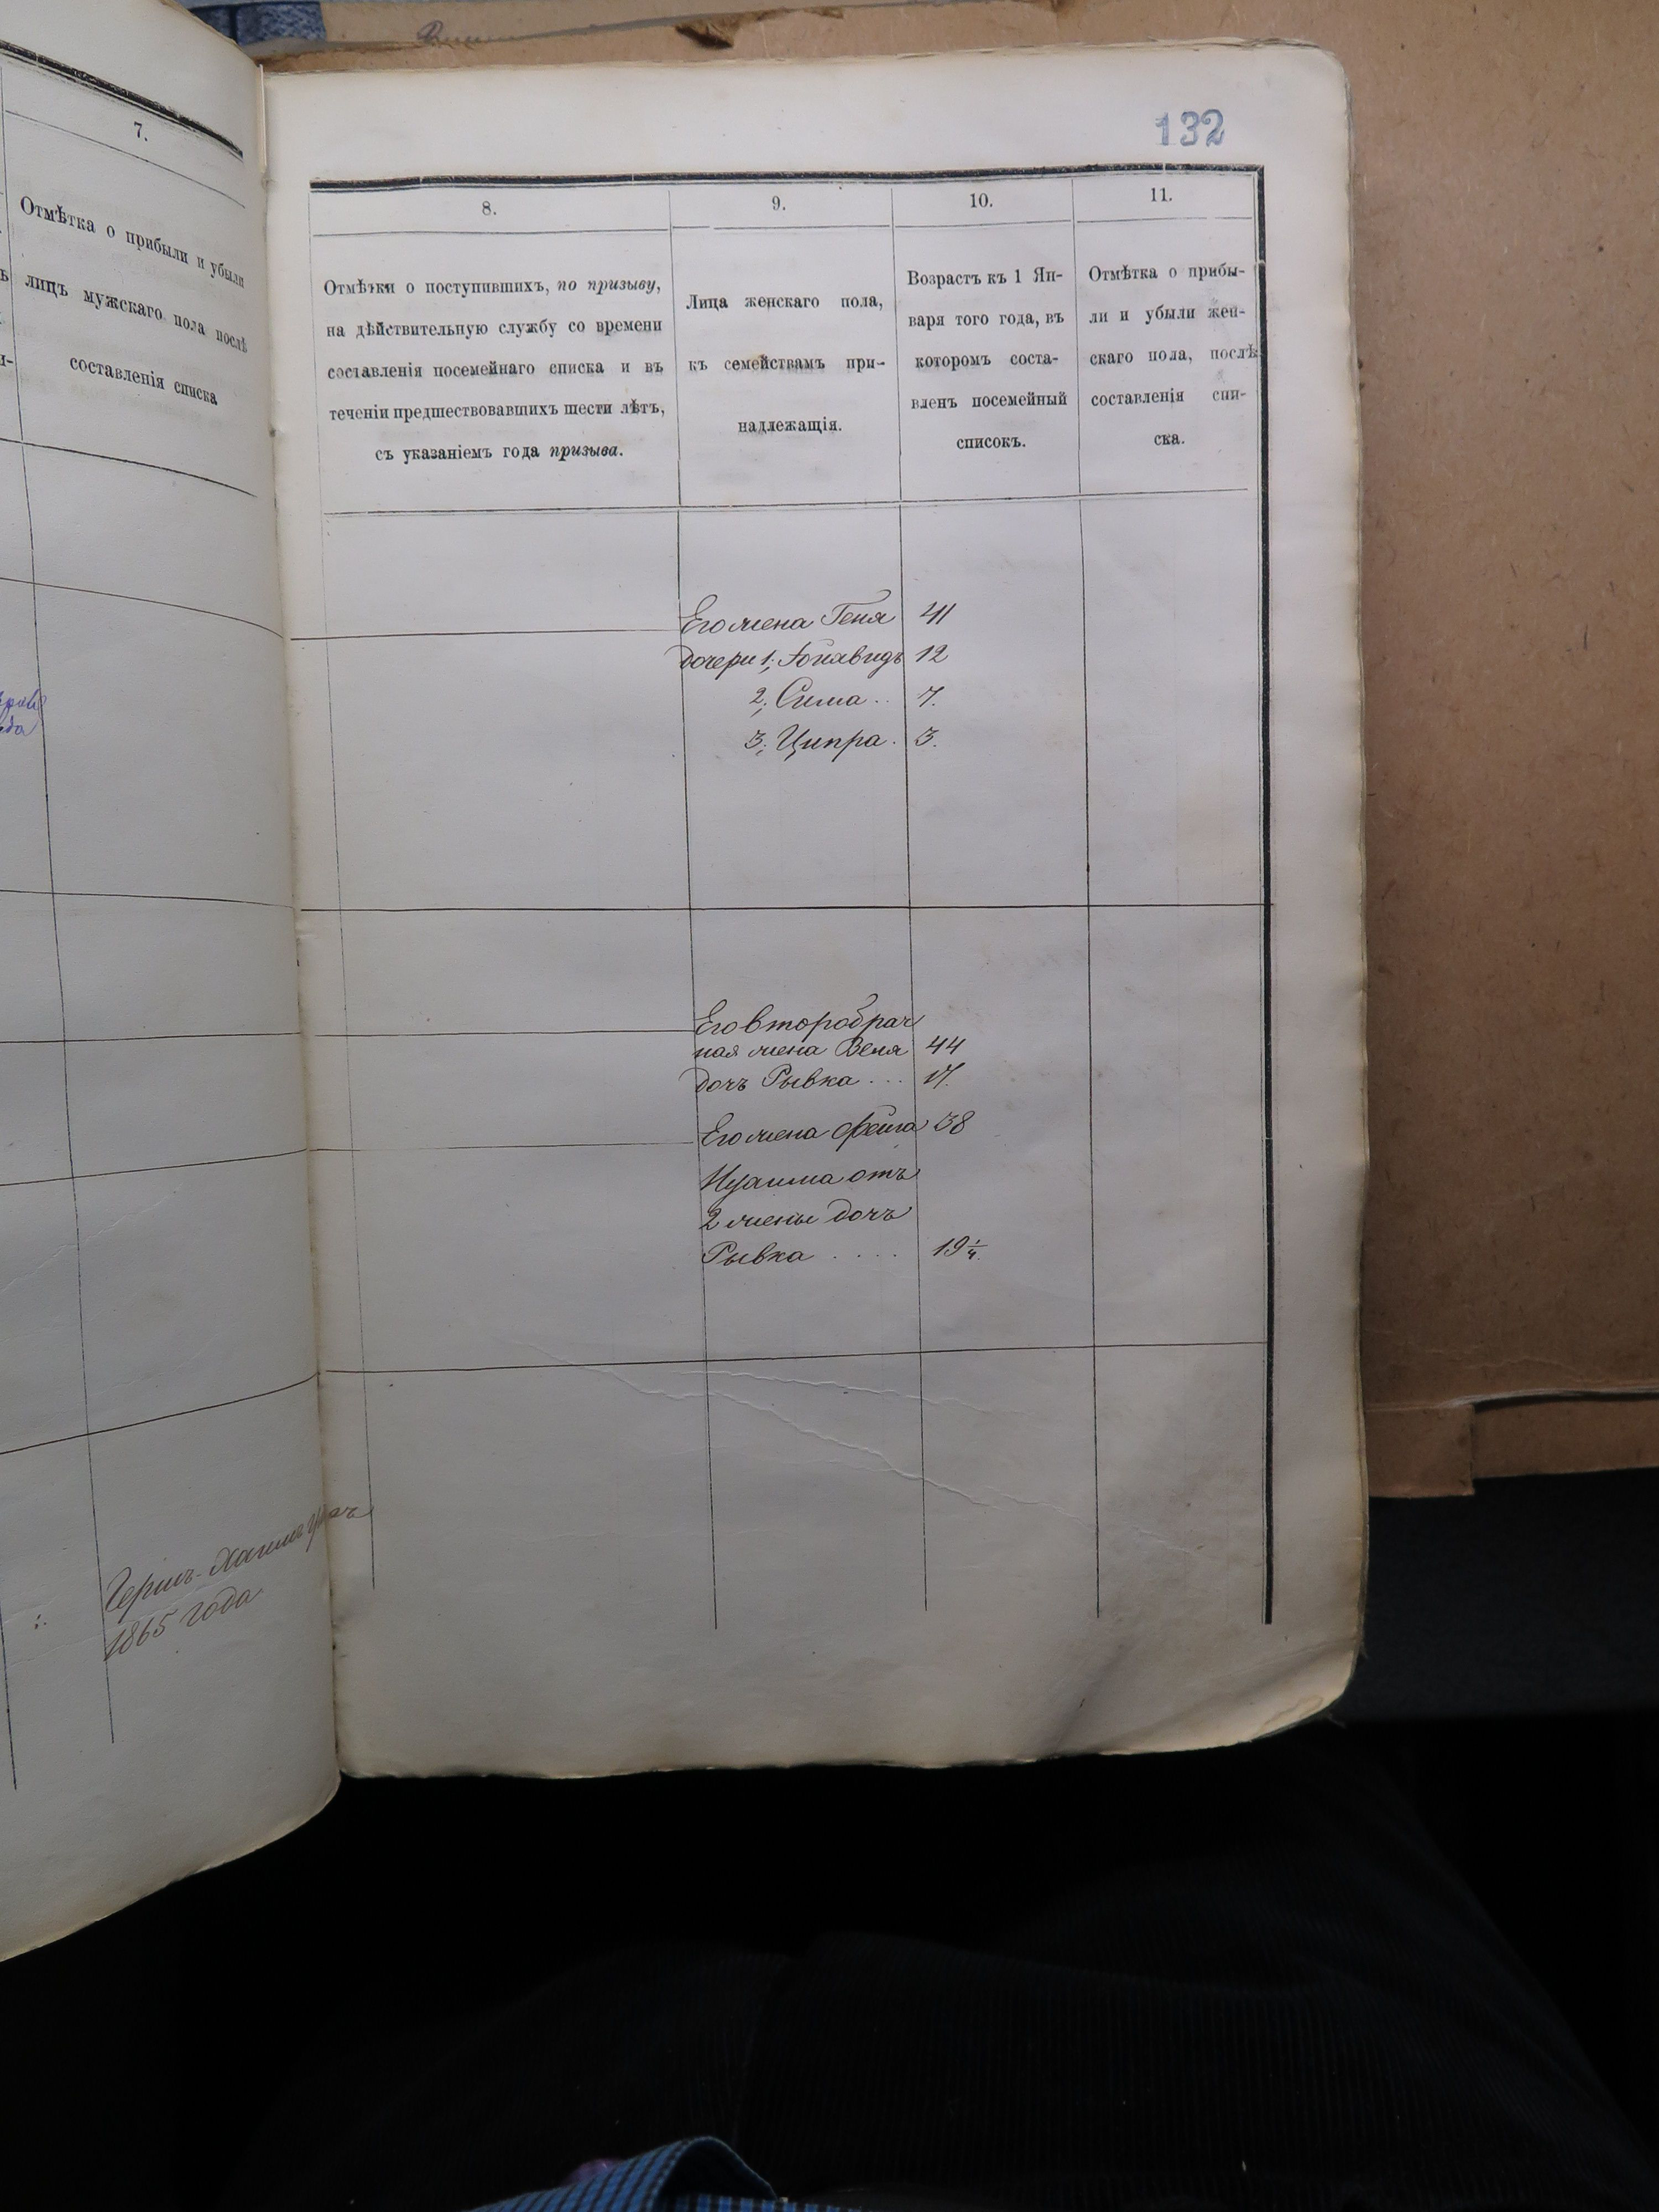 132
7.
Отмѣтка о прибыли и убыли
лицъ мужскаго пола послѣ
составленія списка
8.
Отмѣтки о поступившихъ, по призыву,
на дѣйствительную службу со времени
составленія посемейнаго списка и въ
теченіи предшествовавшихъ шести лѣтъ,
съ указаніемъ года призыва.
9.
Лица женскаго пола,
къ семействамъ при-
надлежащія.
10.
Возрастъ къ 1 Ян-
варя того года, въ
которомъ соста-
вленъ посемейный
списокъ.
11.
Отмѣтка о прибы-
ли и убыли жен-
скаго пола, послѣ
составленія спи-
ска.
Его жена Геня 41
дочери 1; 12
2; Сима .. 7.
3; Ципра . 3.
Его второбрач
ная жена Веня 44
дочь Рывка ... 17.
Его жена Фейга 38
отъ
2 жены дочь
Рывка .... 19 1/4.
Гершъ-Хаимъ
1865 года